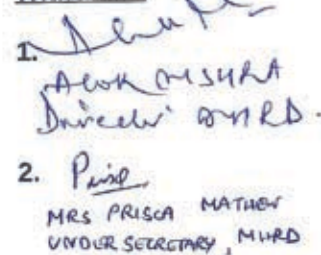 1.
ALOK MISHRA
Director MHRD.
2.
MRS PRISCA MATHEW
UNDER SECRETARY, MHRD